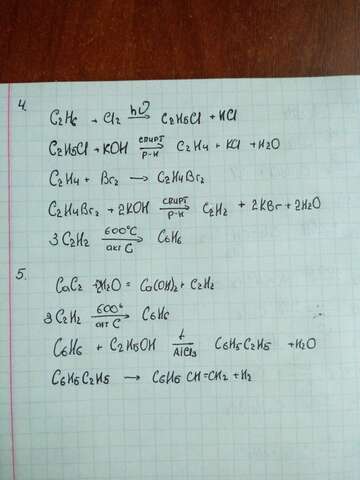 4.
C2H6 + Cl2 hν→ C2H5Cl + HCl
C2H5Cl + KOH спирт р-н→ C2H4 + KCl + H2O
C2H4 + Br2 → C2H4Br2
C2H4Br2 + 2KOH спирт р-н→ C2H2 + 2KBr + 2H2O
3C2H2 600°C акт C→ C6H6
5.
CaC2 + 2H2O = Ca(OH)2 + C2H2
3C2H2 600° акт C→ C6H6
C6H6 + C2H5OH t AlCl3→ C6H5C2H5 + H2O
C6H5C2H5 → C6H5CH=CH2 + H2